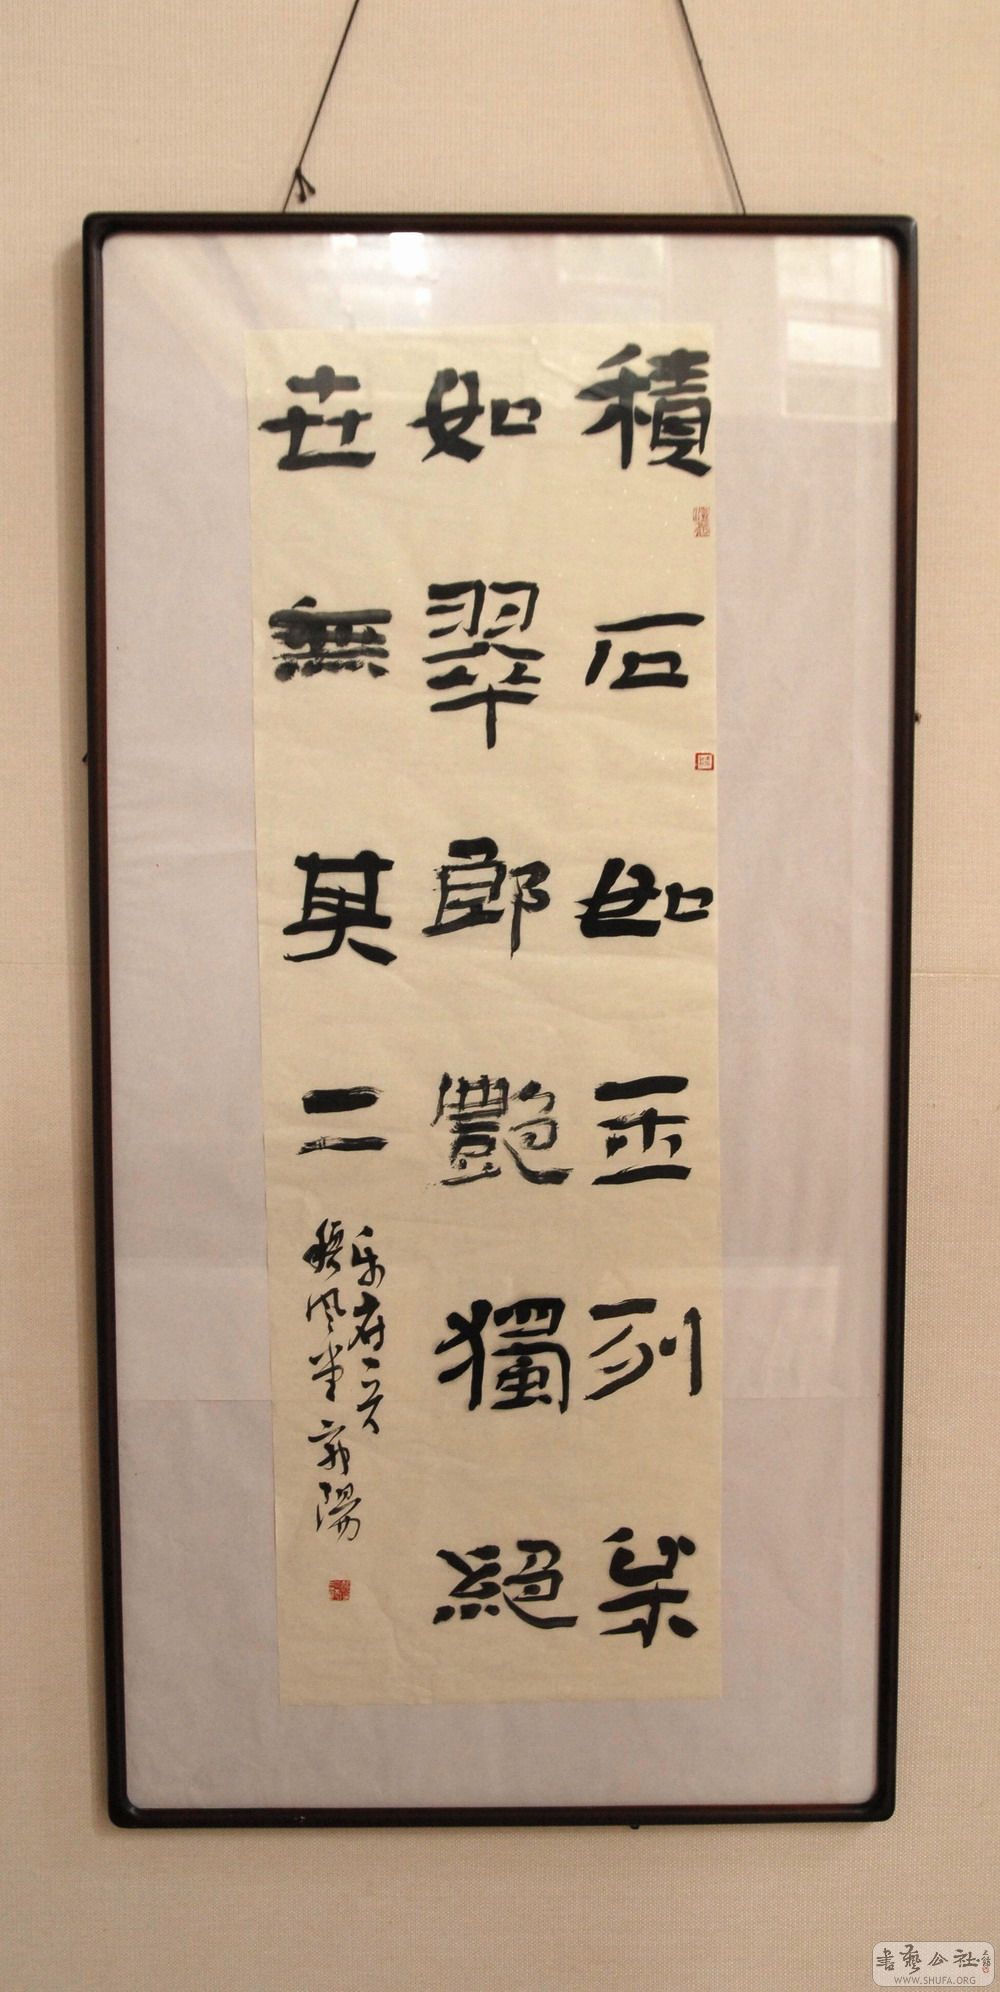 積石如玉列松
如翠郎艷獨絕
世無其二
乐府一首
風堂郭陽
書藝公社
WWW.SHUFA.ORG